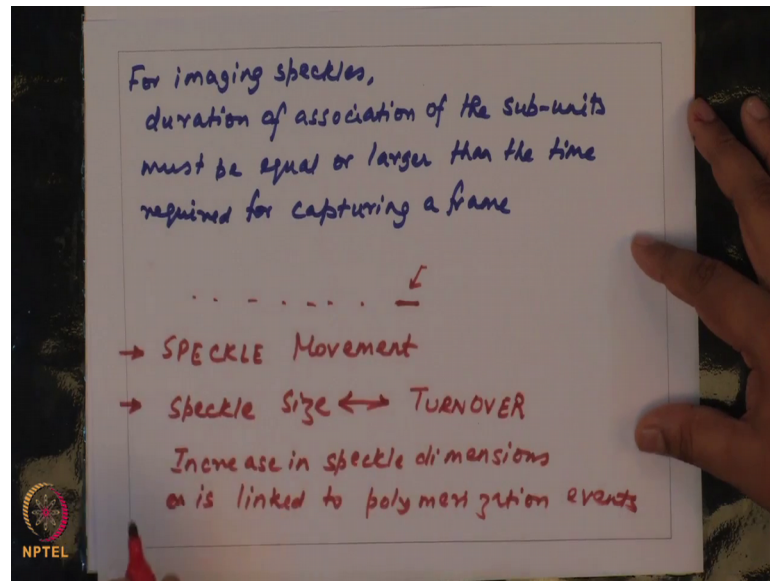 For imaging speckles,
duration of association of the sub-units
must be equal or larger than the time
required for capturing a frame
→ SPECKLE Movement
→ Speckle Size ↔ TURNOVER
Increase in speckle dimensions
is linked to polymerization events
NPTEL